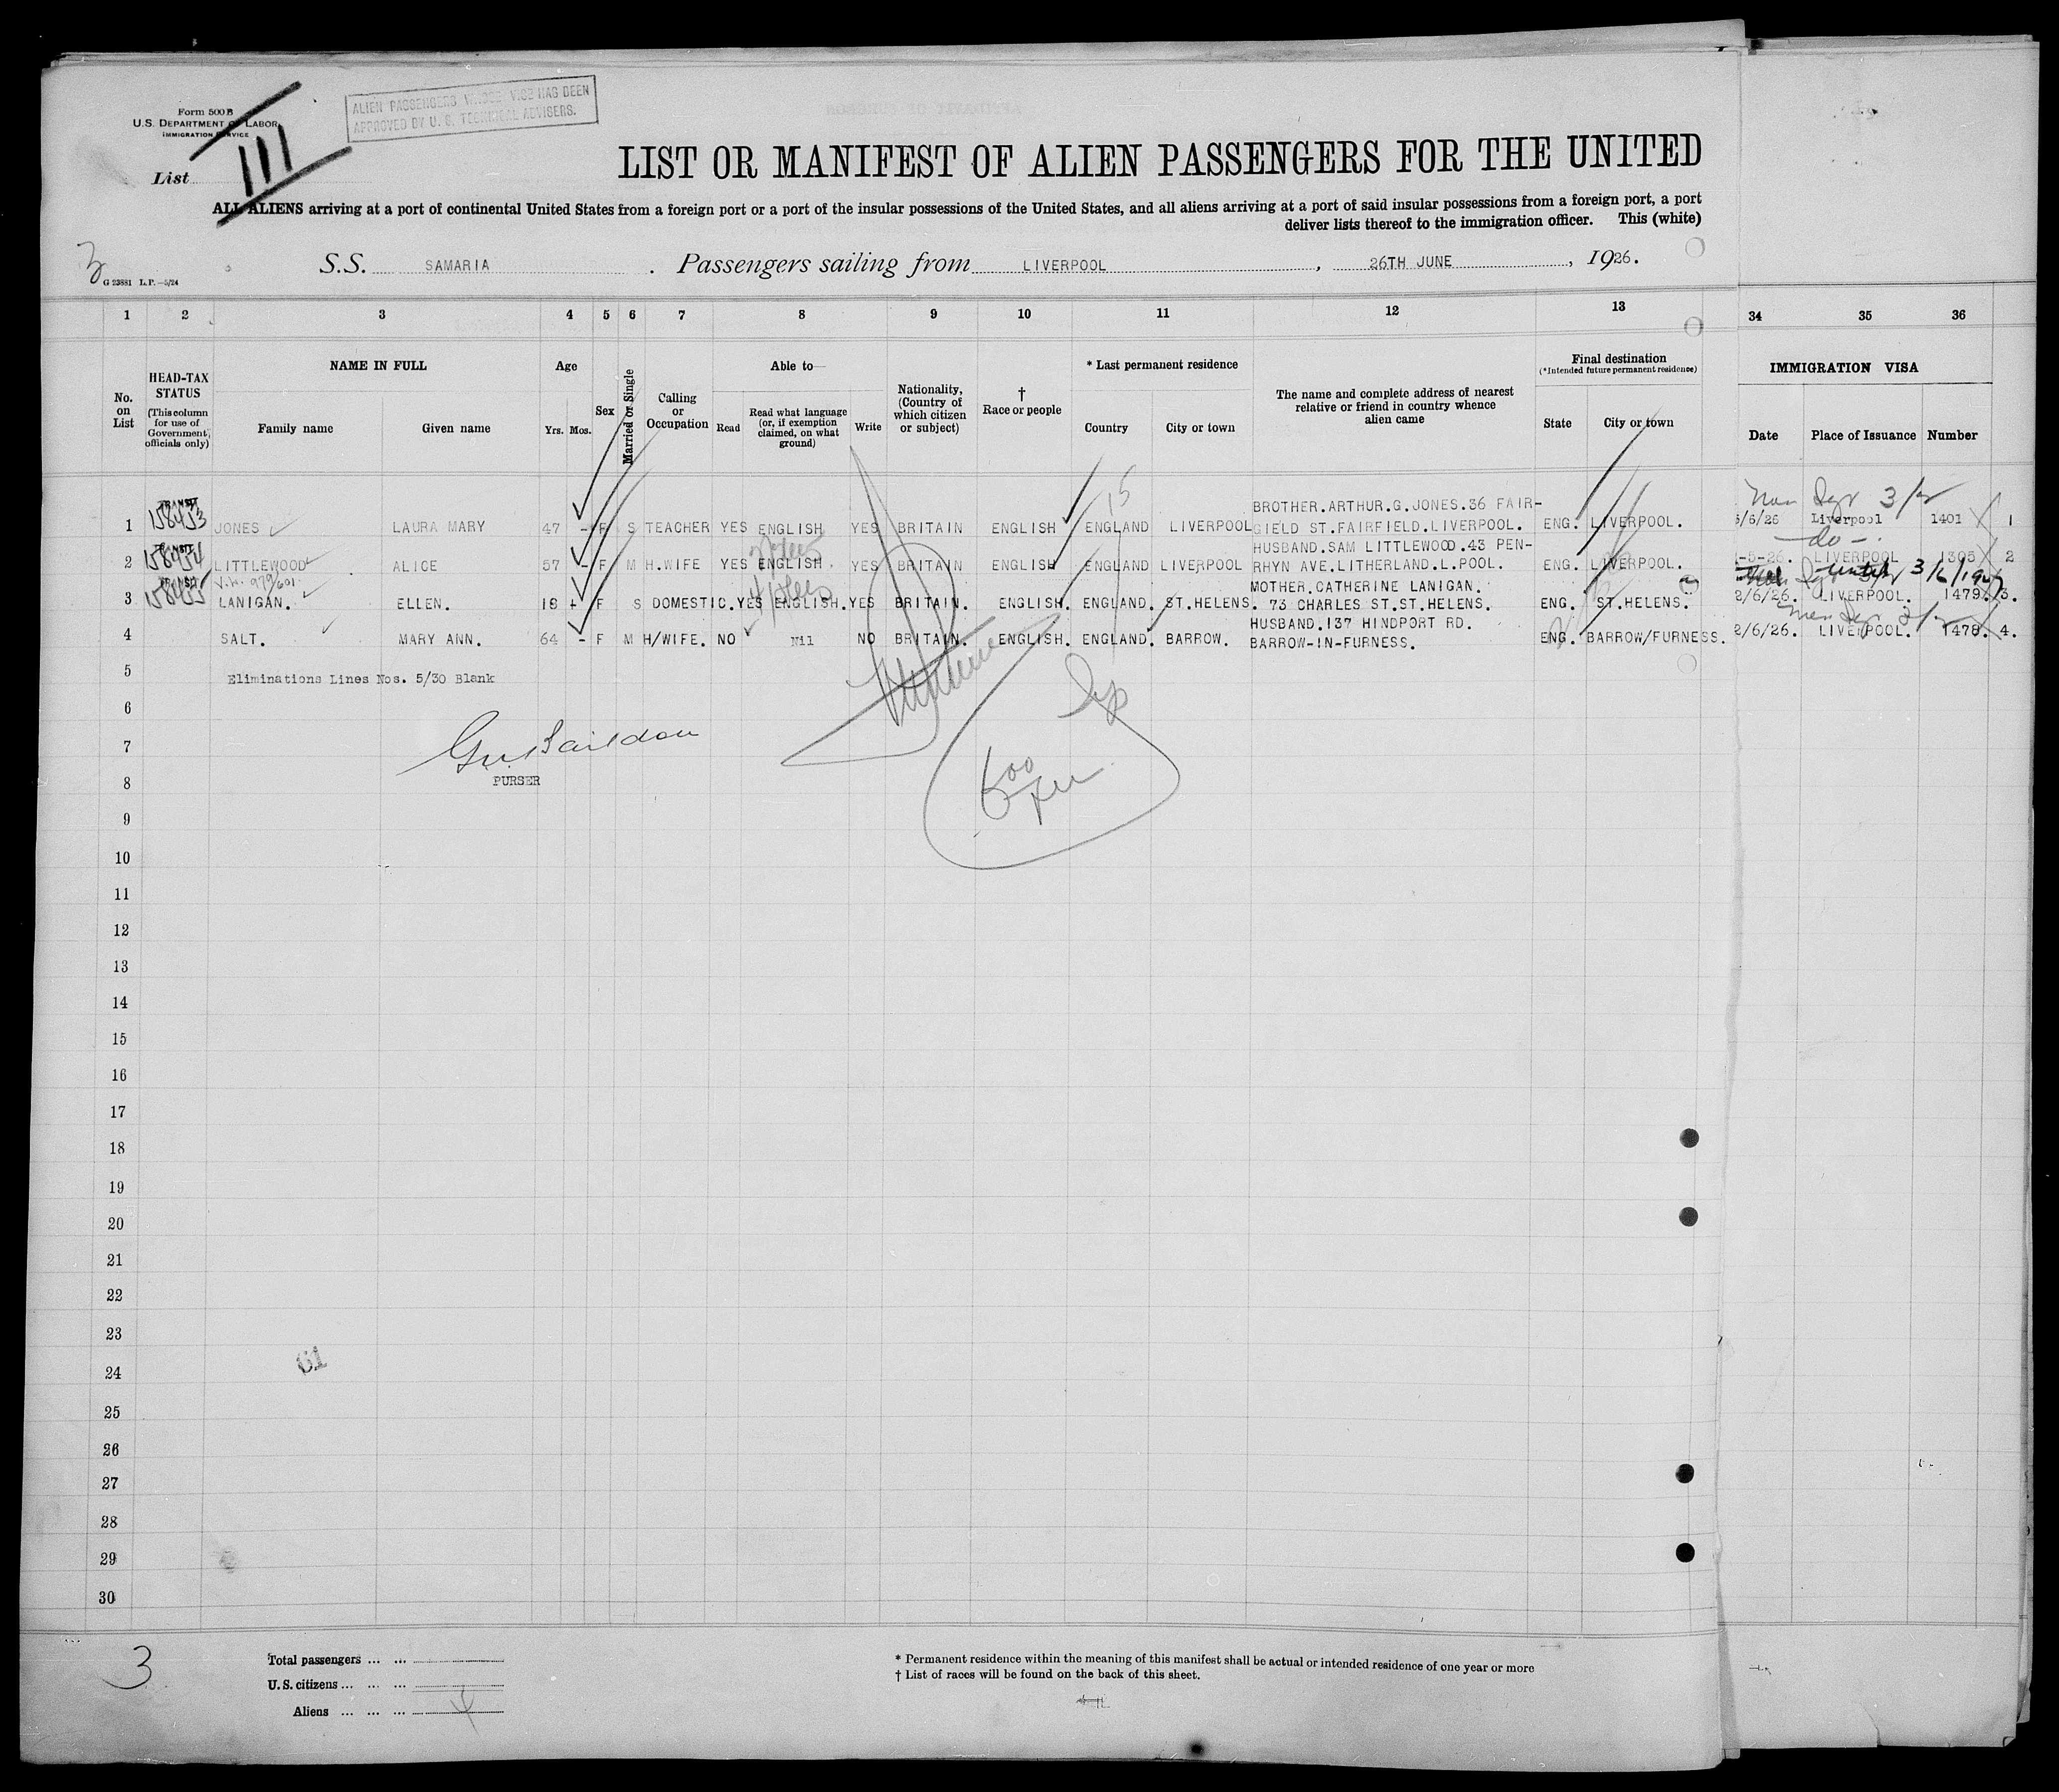 Form 500 B
U.S. DEPARTMENT OF LABOR
IMMIGRATION SERVICE
ALIEN PASSENGERS WHOSE VISE HAS BEEN
APPROVED BY U. S. TECHNICAL ADVISERS.
List 111
LIST OR MANIFEST OF ALIEN PASSENGERS FOR THE UNITED
ALL ALIENS arriving at a port of continental United States from a foreign port or a port of the insular possessions of the United States, and all aliens arriving at a port of said insular possessions from a foreign port, a port
deliver lists thereof to the immigration officer. This (white)
3
G 23881 L.P.—5/24
S.S. SAMARIA. Passengers sailing from LIVERPOOL, 26TH JUNE, 1926.
1 2 3 4 5 6 7 8 9 10 11 12 13 34 35 36
No. on List
HEAD-TAX STATUS
(This column for use of Government officials only)
NAME IN FULL
Family name Given name
Age
Yrs. Mos.
Sex
Married or Single
Calling or Occupation
Able to
Read
Read what language (or, if exemption claimed, on what ground)
Write
Nationality, (Country of which citizen or subject)
† Race or people
* Last permanent residence
Country City or town
The name and complete address of nearest relative or friend in country whence alien came
Final destination
(*Intended future permanent residence)
State City or town
IMMIGRATION VISA
Date Place of Issuance Number
15
TRANSIT
BROTHER.ARTHUR.G.JONES.36 FAIR-
1 158453 JONES LAURA MARY 47 - F S TEACHER YES ENGLISH YES BRITAIN ENGLISH ENGLAND LIVERPOOL GIELD ST.FAIRFIELD.LIVERPOOL. ENG. LIVERPOOL. /6/26 Liverpool 1401 1
TRANSIT
HUSBAND.SAM LITTLEWOOD.43 PEN-
- do -
2 158454 LITTLEWOOD ALICE 57 - F M H.WIFE YES ENGLISH. YES BRITAIN ENGLISH ENGLAND LIVERPOOL RHYN AVE.LITHERLAND.L.POOL. ENG. LIVERPOOL. -5-26. LIVERPOOL 1305 2
TRANSIT
MOTHER.CATHERINE LANIGAN.
3 158455 LANIGAN. ELLEN. 18 F S DOMESTIC. YES ENGLISH. YES BRITAIN. ENGLISH. ENGLAND. ST.HELENS. 73 CHARLES ST.ST.HELENS. ENG. ST.HELENS. 2/6/26. LIVERPOOL. 1479. 3.
HUSBAND.137 HINDPORT RD.
4 SALT. MARY ANN. 64 - F M H/WIFE. NO Nil NO BRITAIN. ENGLISH. ENGLAND. BARROW. BARROW-IN-FURNESS. ENG. BARROW/FURNESS. 2/6/26. LIVERPOOL. 1478. 4.
5 Eliminations Lines Nos. 5/30 Blank
6
7
PURSER
8
9
10
11
12
13
14
15
16
17
18
19
20
21
22
23
24
61
25
26
27
28
29
30
3
Total passengers ... ...
U. S. citizens ... ... ...
Aliens ... ... ... 4
* Permanent residence within the meaning of this manifest shall be actual or intended residence of one year or more
† List of races will be found on the back of this sheet.